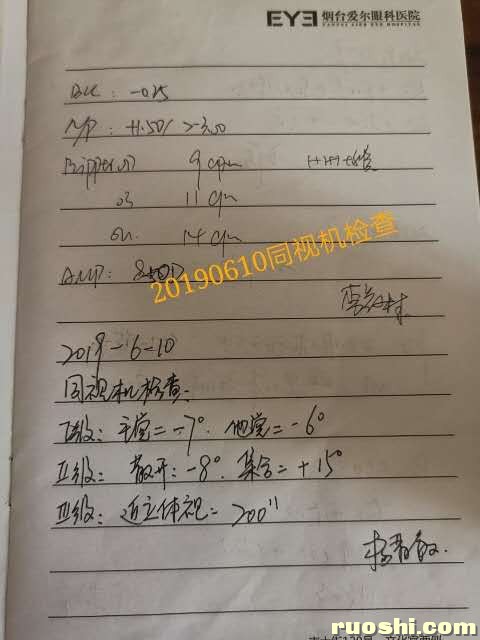 EYE 烟台爱尔眼科医院
YANTAI AIER EYE HOSPITAL
BCC: -0.25
NRA/PRA: +1.50/>-3.00
9 cpm
OS 11 cpm
OU 14 cpm
AMP:
20190610同视机检查
2019-6-10
同视机检查:
I级: 主觉=-7° 他觉=-6°
II级: 散开:-8° 集合=+15°
III级: 近立体视=200"
ruoshi.com